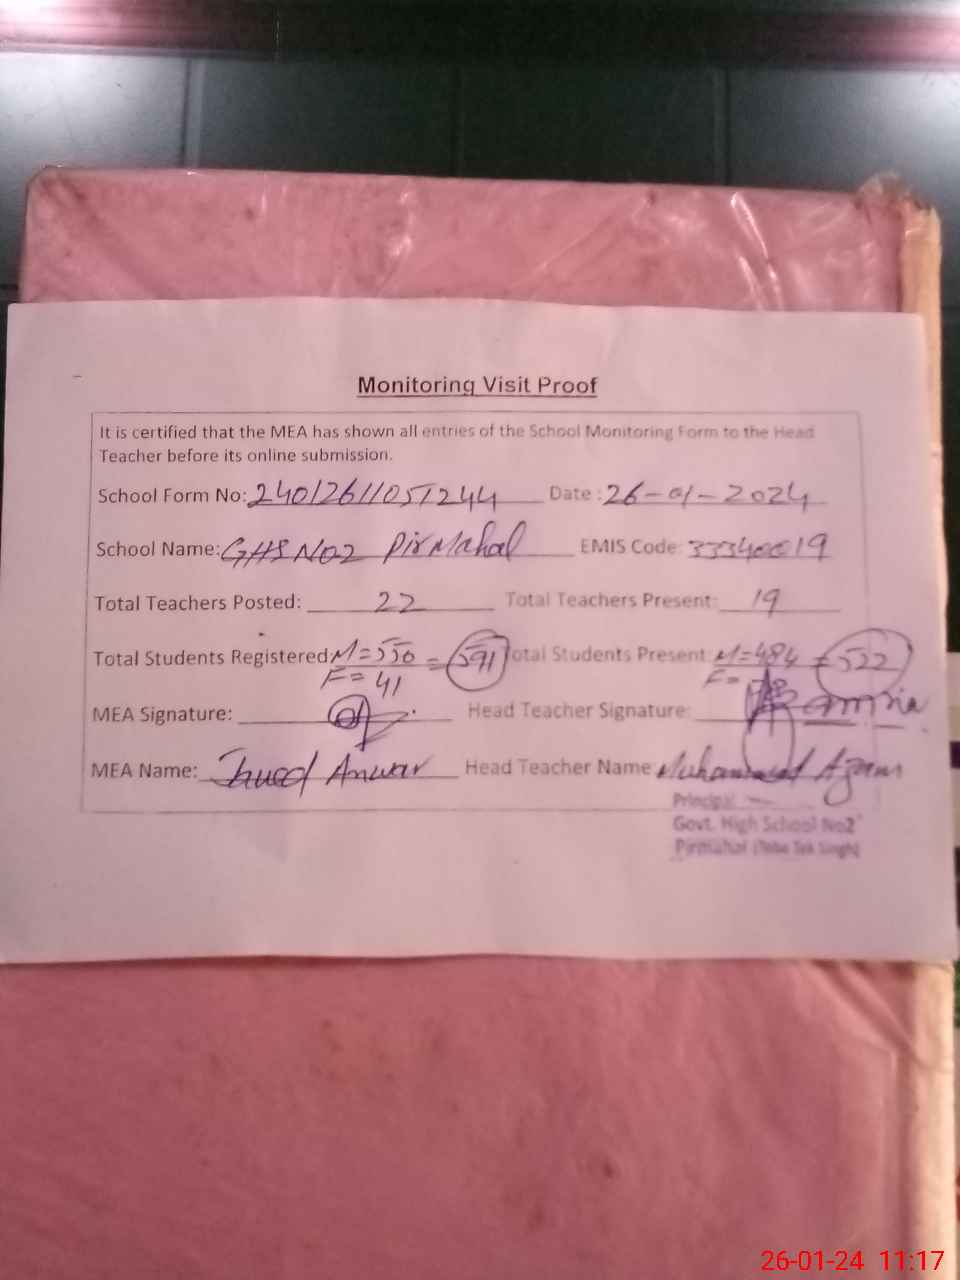 Monitoring Visit Proof
It is certified that the MEA has shown all entries of the School Monitoring Form to the Head
Teacher before its online submission.
School Form No: 24012611051244 Date : 26-01-2024
School Name: GHS NO2 Pir Mahal EMIS Code: 33340019
Total Teachers Posted: 22 Total Teachers Present: 19
Total Students Registered M=550 = 591 Total Students Present: M=484 = 522
F= 41 F=
MEA Signature: Head Teacher Signature:
MEA Name: Javed Anwar Head Teacher Name Muhammad Azam
Principal
Govt. High School No2
Pirmahal (Toba Tek Singh)
26-01-24 11:17